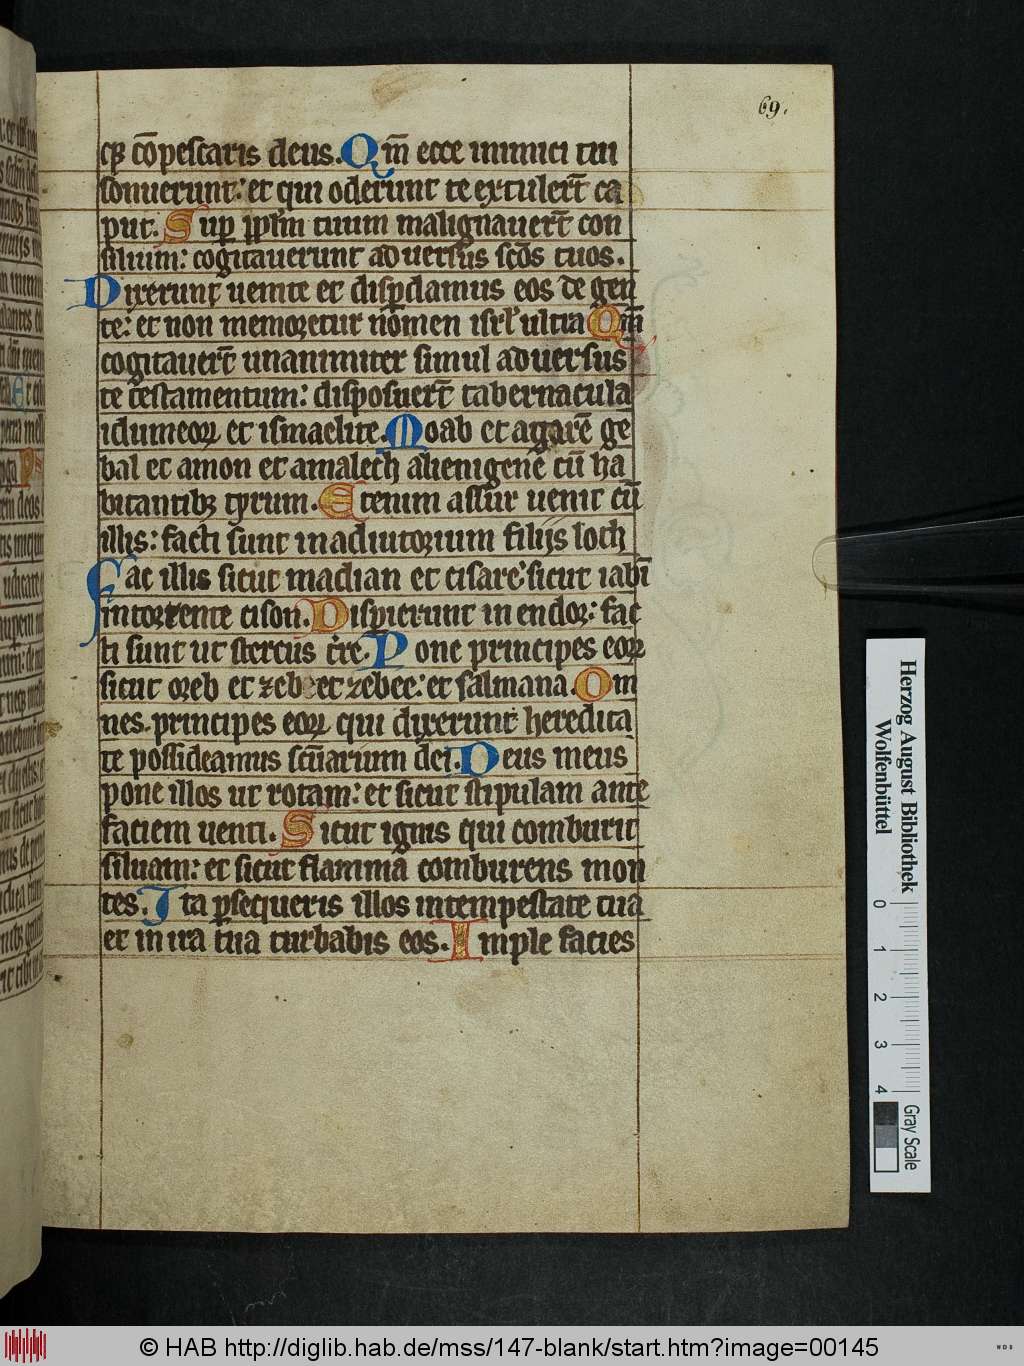 69.
cꝫ cōpescaris deus. Qm̄ ecce inimici tui
sonuerunt: et qui oderunt te extulert̄ ca
put. Sup̱ pp̄lm tuum malignauert̄ con
silium: cogitauerunt aduersus scōs tuos.
Dixerunt uenite et disp̱damus eos de gen
te: et non memoretur nomen isrl̄ ultra Qm̄
cogitauert̄ unanimiter simul aduersus
te testamentum: disposuert̄ tabernacula
idumeoꝝ et ismaelite. Moab et agarē ge
bal et amon et amalech alienigene cū ha
bitantibꝫ tyrum. Etenim assur uenit cū
illis: facti sunt in adiutorium filijs loth
Fac illis sicut madian et cisare: sicut iabī
in torrente cison. Disp̱ierunt in endor: fac
ti sunt ut stercus tr̄re. Pone principes eoꝝ
sicut oreb et zeb et zebee: et salmana. Om
nes principes eoꝝ qui dixerunt heredita
te possideamus scūarium dei. Deus meus
pone illos ut rotam: et sicut stipulam ante
faciem uenti. Sicut ignis qui comburit
siluam: et sicut flammā comburens mon
tes. Ita p̱sequeris illos in tempestate tua
et in ira tua turbabis eos. Imple facies
Herzog August Bibliothek
Wolfenbüttel
0 1 2 3 4
Gray Scale
© HAB http://diglib.hab.de/mss/147-blank/start.htm?image=00145